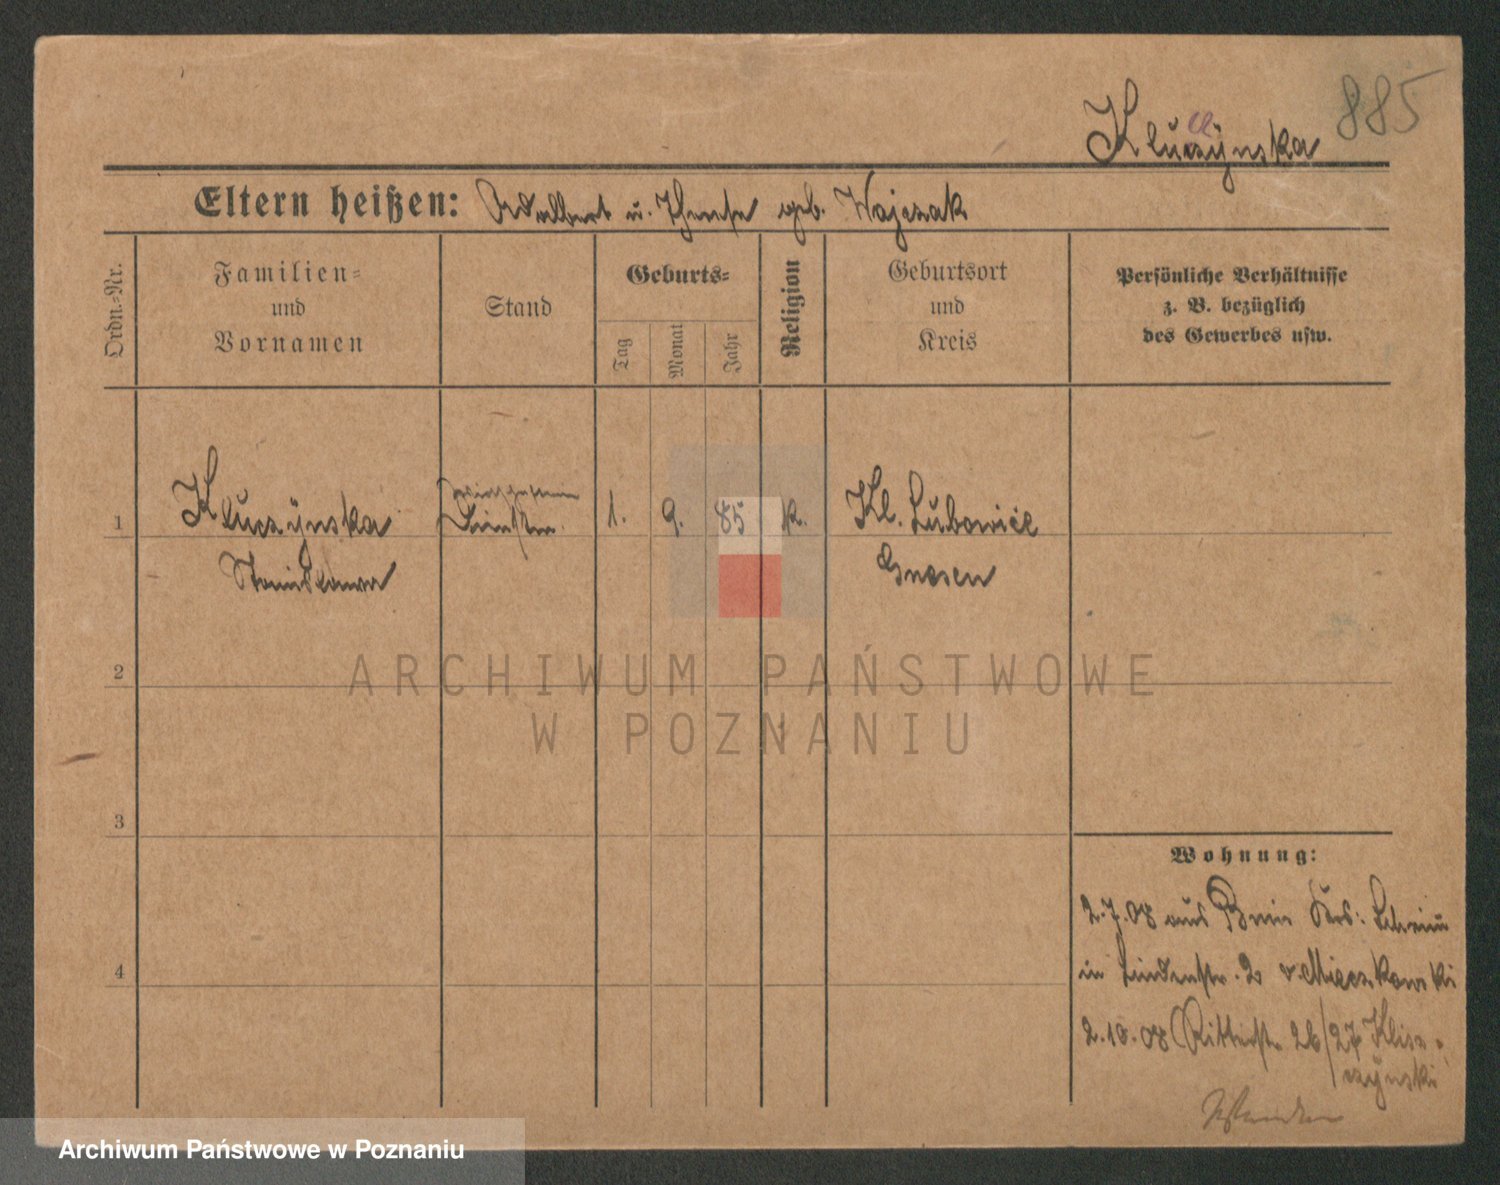 885
Kluczynska
Eltern heißen: Adalbert u. Therese geb. Wajczak
Ordn.-Nr.
Familien-
und
Vornamen
Stand
Geburts-
Tag
Monat
Jahr
Religion
Geburtsort
und
Kreis
Persönliche Verhältnisse
z. B. bezüglich
des Gewerbes usw.
1
Kluczynska
Stanislawa
1. 9. 85 k.
Kl. Lubowice
Gnesen
2
3
4
Wohnung:
2.7.08 aus Bnin Krs. Schrimm
in Lindenstr. 2 v Mieczkowski
2.10.08 Ritterstr. 26/27 Klisz-
czynski
ARCHIWUM PAŃSTWOWE
W POZNANIU
Archiwum Państwowe w Poznaniu